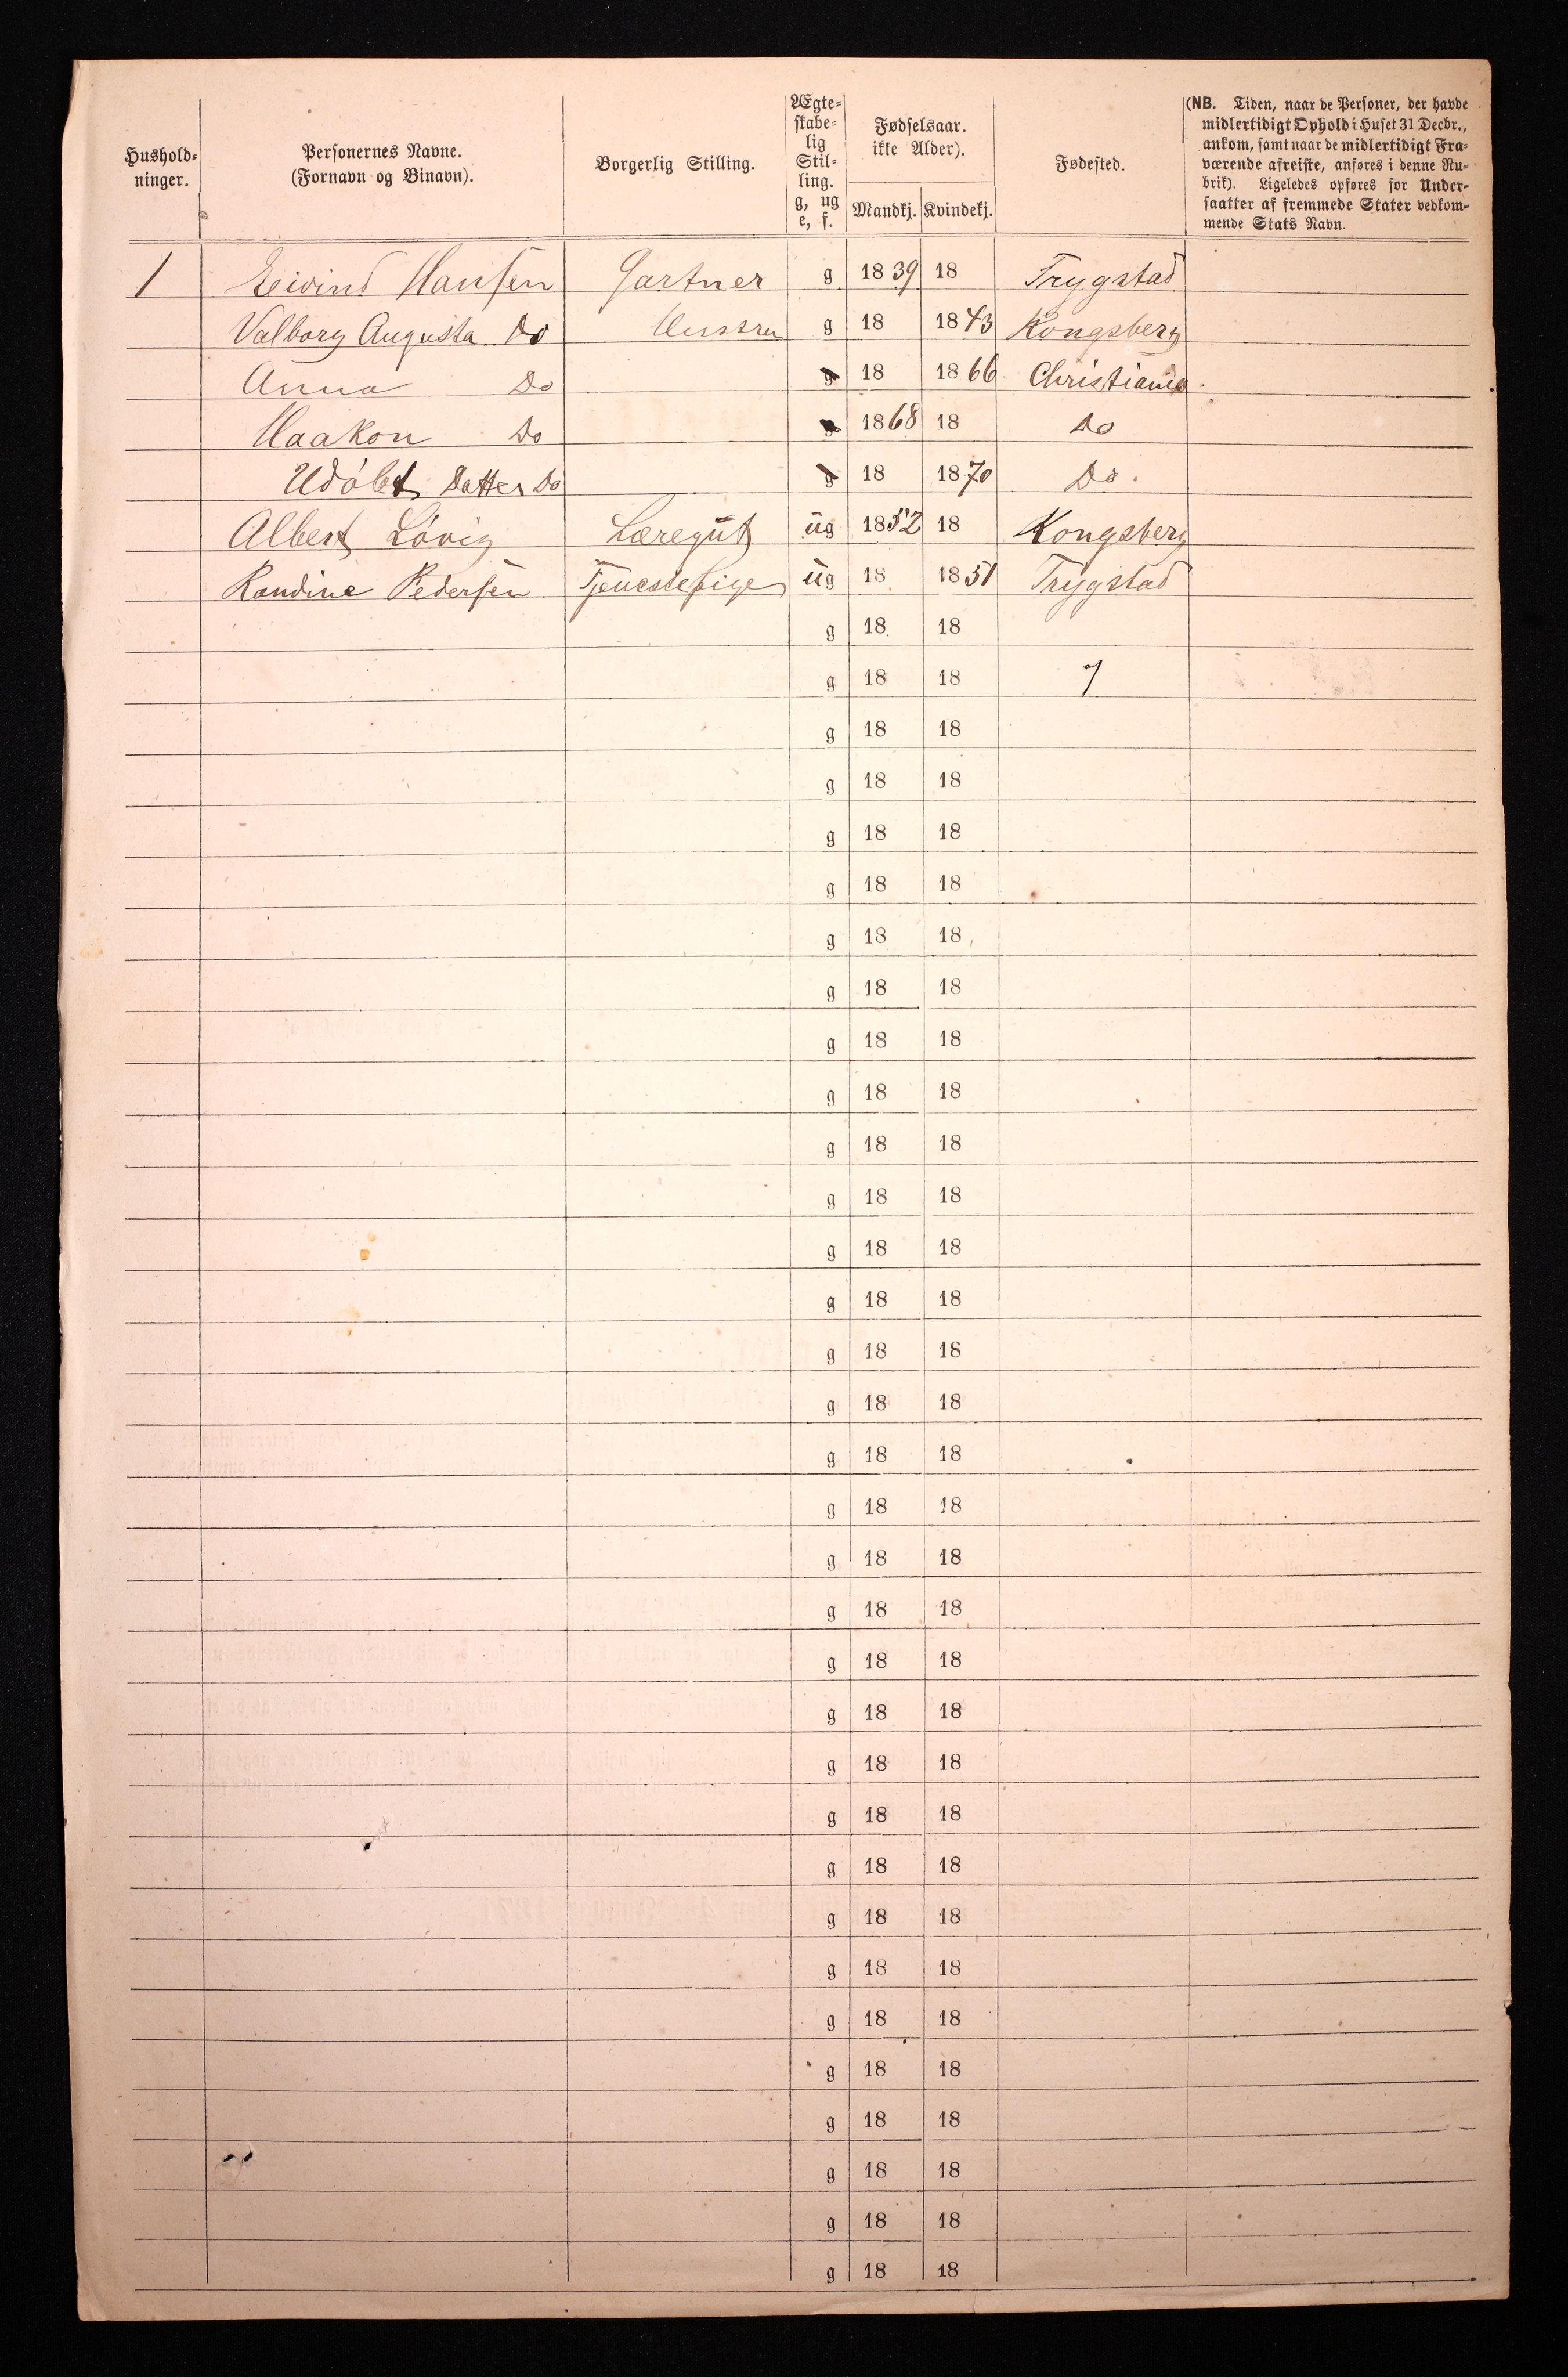 Hushold-
ninger.
Personernes Navne.
(Fornavn og Binavn).
Borgerlig Stilling.
Ægte-
skabe-
lig
Stil-
ling.
g, ug
e, f.
Fødselsaar.
ikke Alder).
Mandkj. Kvindekj.
Fødested.
(NB. Tiden, naar de Personer, der havde
midlertidigt Ophold i Huset 31 Decbr.,
ankom, samt naar de midlertidigt Fra-
værende afreiste, anføres i denne Ru-
brik). Ligeledes opføres for Under-
saatter af fremmede Stater vedkom-
mende Stats Navn.
1 Eivind Hansen Gartner g 1839 18 Trygstad
Valborg Augusta Do Hustru g 18 1843 Kongsberg
Anna Do g 18 1866 Christiania
Haakon Do g 1868 18 Do
Udøbt Datter Do g 18 1870 Do.
Albert Lövig Læregut ug 1852 18 Kongsberg
Randine Pedersen Tjenestepige ug 18 1851 Trygstad
g 18 18
g 18 18 7
g 18 18
g 18 18
g 18 18
g 18 18
g 18 18
g 18 18
g 18 18
g 18 18
g 18 18
g 18 18
g 18 18
g 18 18
g 18 18
g 18 18
g 18 18
g 18 18
g 18 18
g 18 18
g 18 18
g 18 18
g 18 18
g 18 18
g 18 18
g 18 18
g 18 18
g 18 18
g 18 18
g 18 18
g 18 18
g 18 18
g 18 18